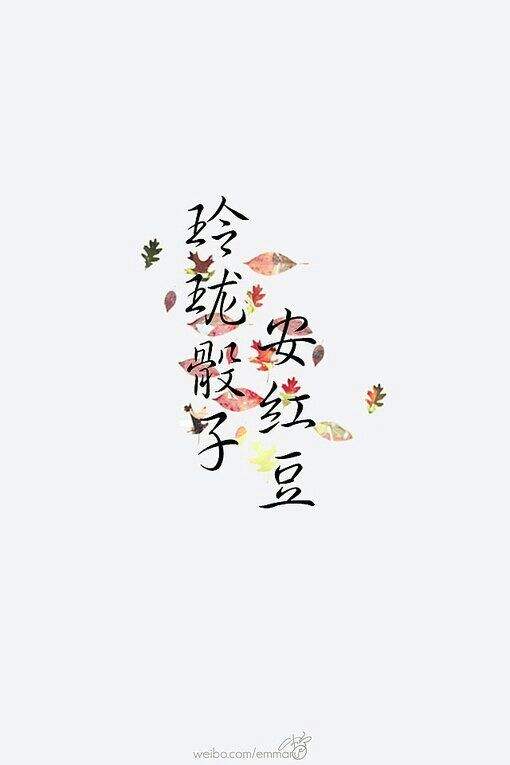 玲珑骰子
安红豆
weibo.com/emmaru